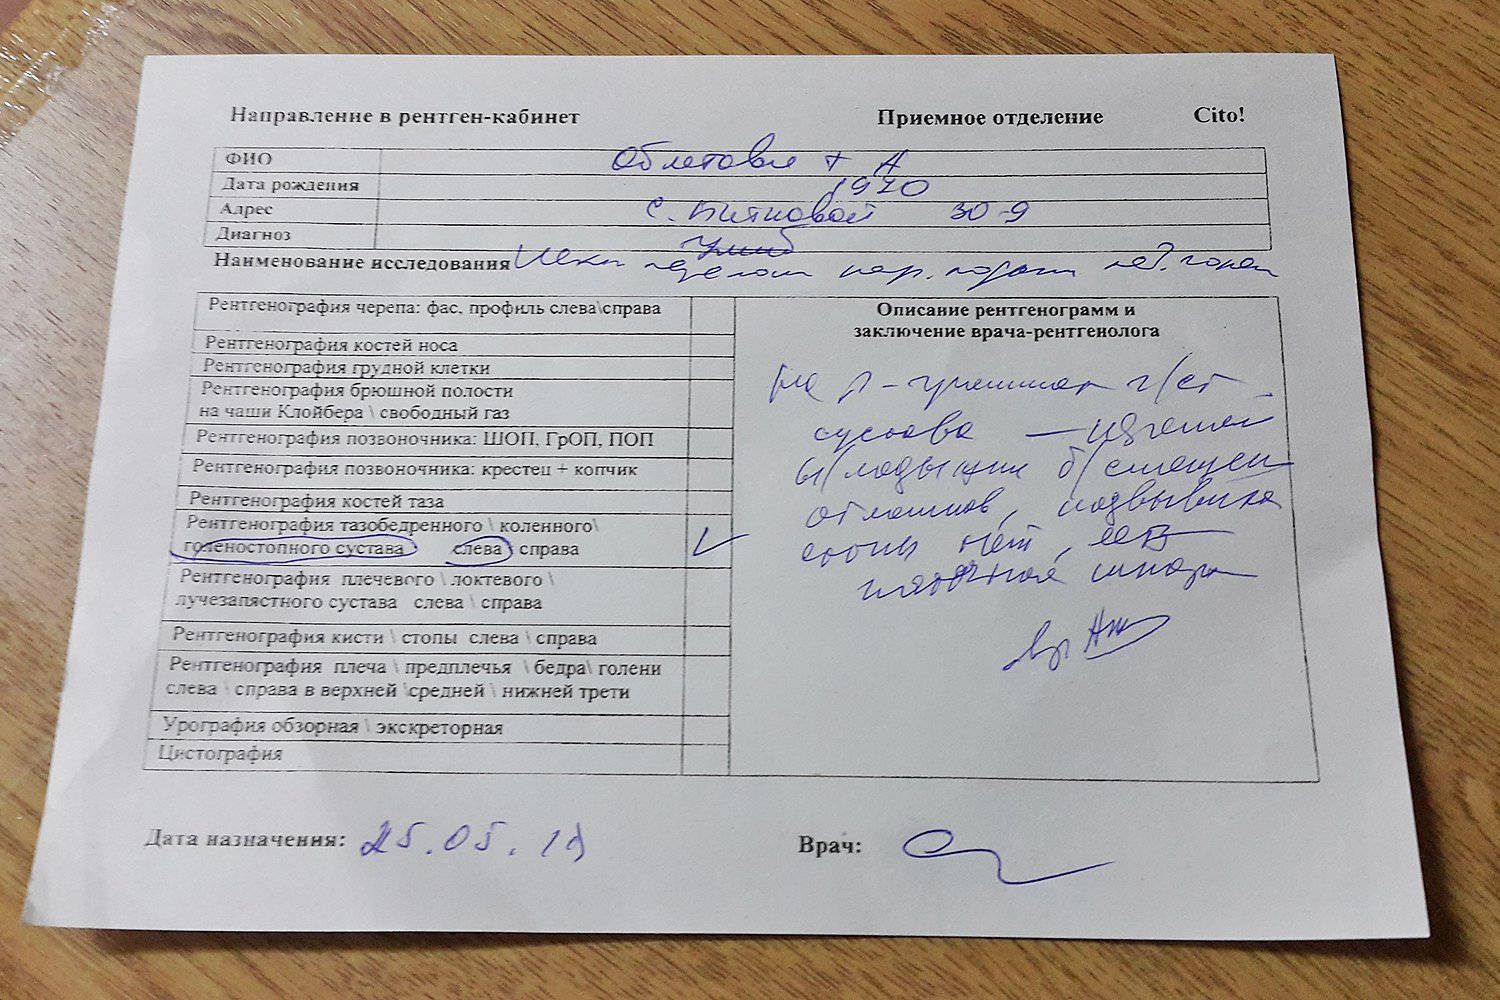 Направление в рентген-кабинет Приемное отделение Cito!
ФИО
Дата рождения 1970
Адрес 30-9
Диагноз
Наименование исследования
Рентгенография черепа: фас, профиль слева\справа
Рентгенография костей носа
Рентгенография грудной клетки
Рентгенография брюшной полости
на чаши Клойбера \ свободный газ
Рентгенография позвоночника: ШОП, ГрОП, ПОП
Рентгенография позвоночника: крестец + копчик
Рентгенография костей таза
Рентгенография тазобедренного \ коленного\
голеностопного сустава слева \ справа
Рентгенография плечевого \ локтевого \
лучезапястного сустава слева \ справа
Рентгенография кисти \ стопы слева \ справа
Рентгенография плеча \ предплечья \ бедра\ голени
слева \ справа в верхней \средней \ нижней трети
Урография обзорная \ экскреторная
Цистография
Описание рентгенограмм и
заключение врача-рентгенолога
На г/ст
сустава —
б/смещен
отломков, подвывиха
стопы нет, есть
пяточная шпора
Дата назначения: 25.05.19
Врач: